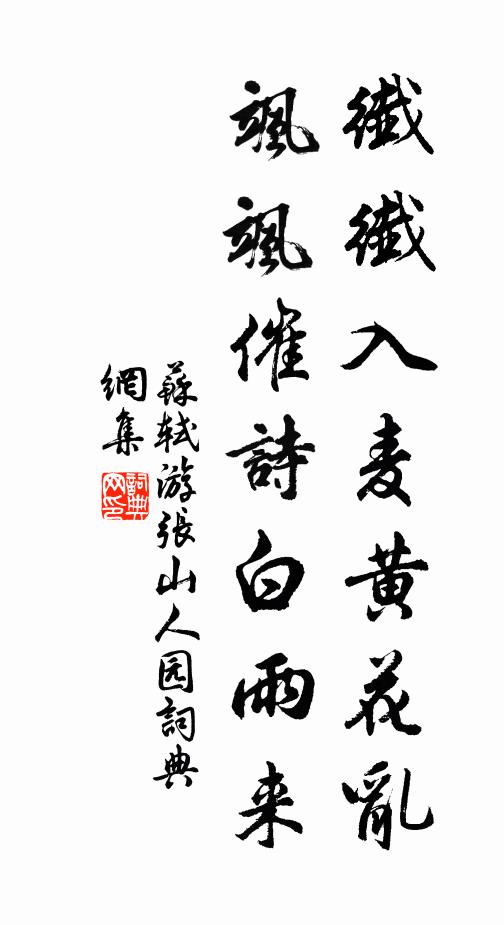 纖纖入麦黄花亂
颯颯催詩白雨来
蘇轼游張山人园詞典
網集
詞典網印